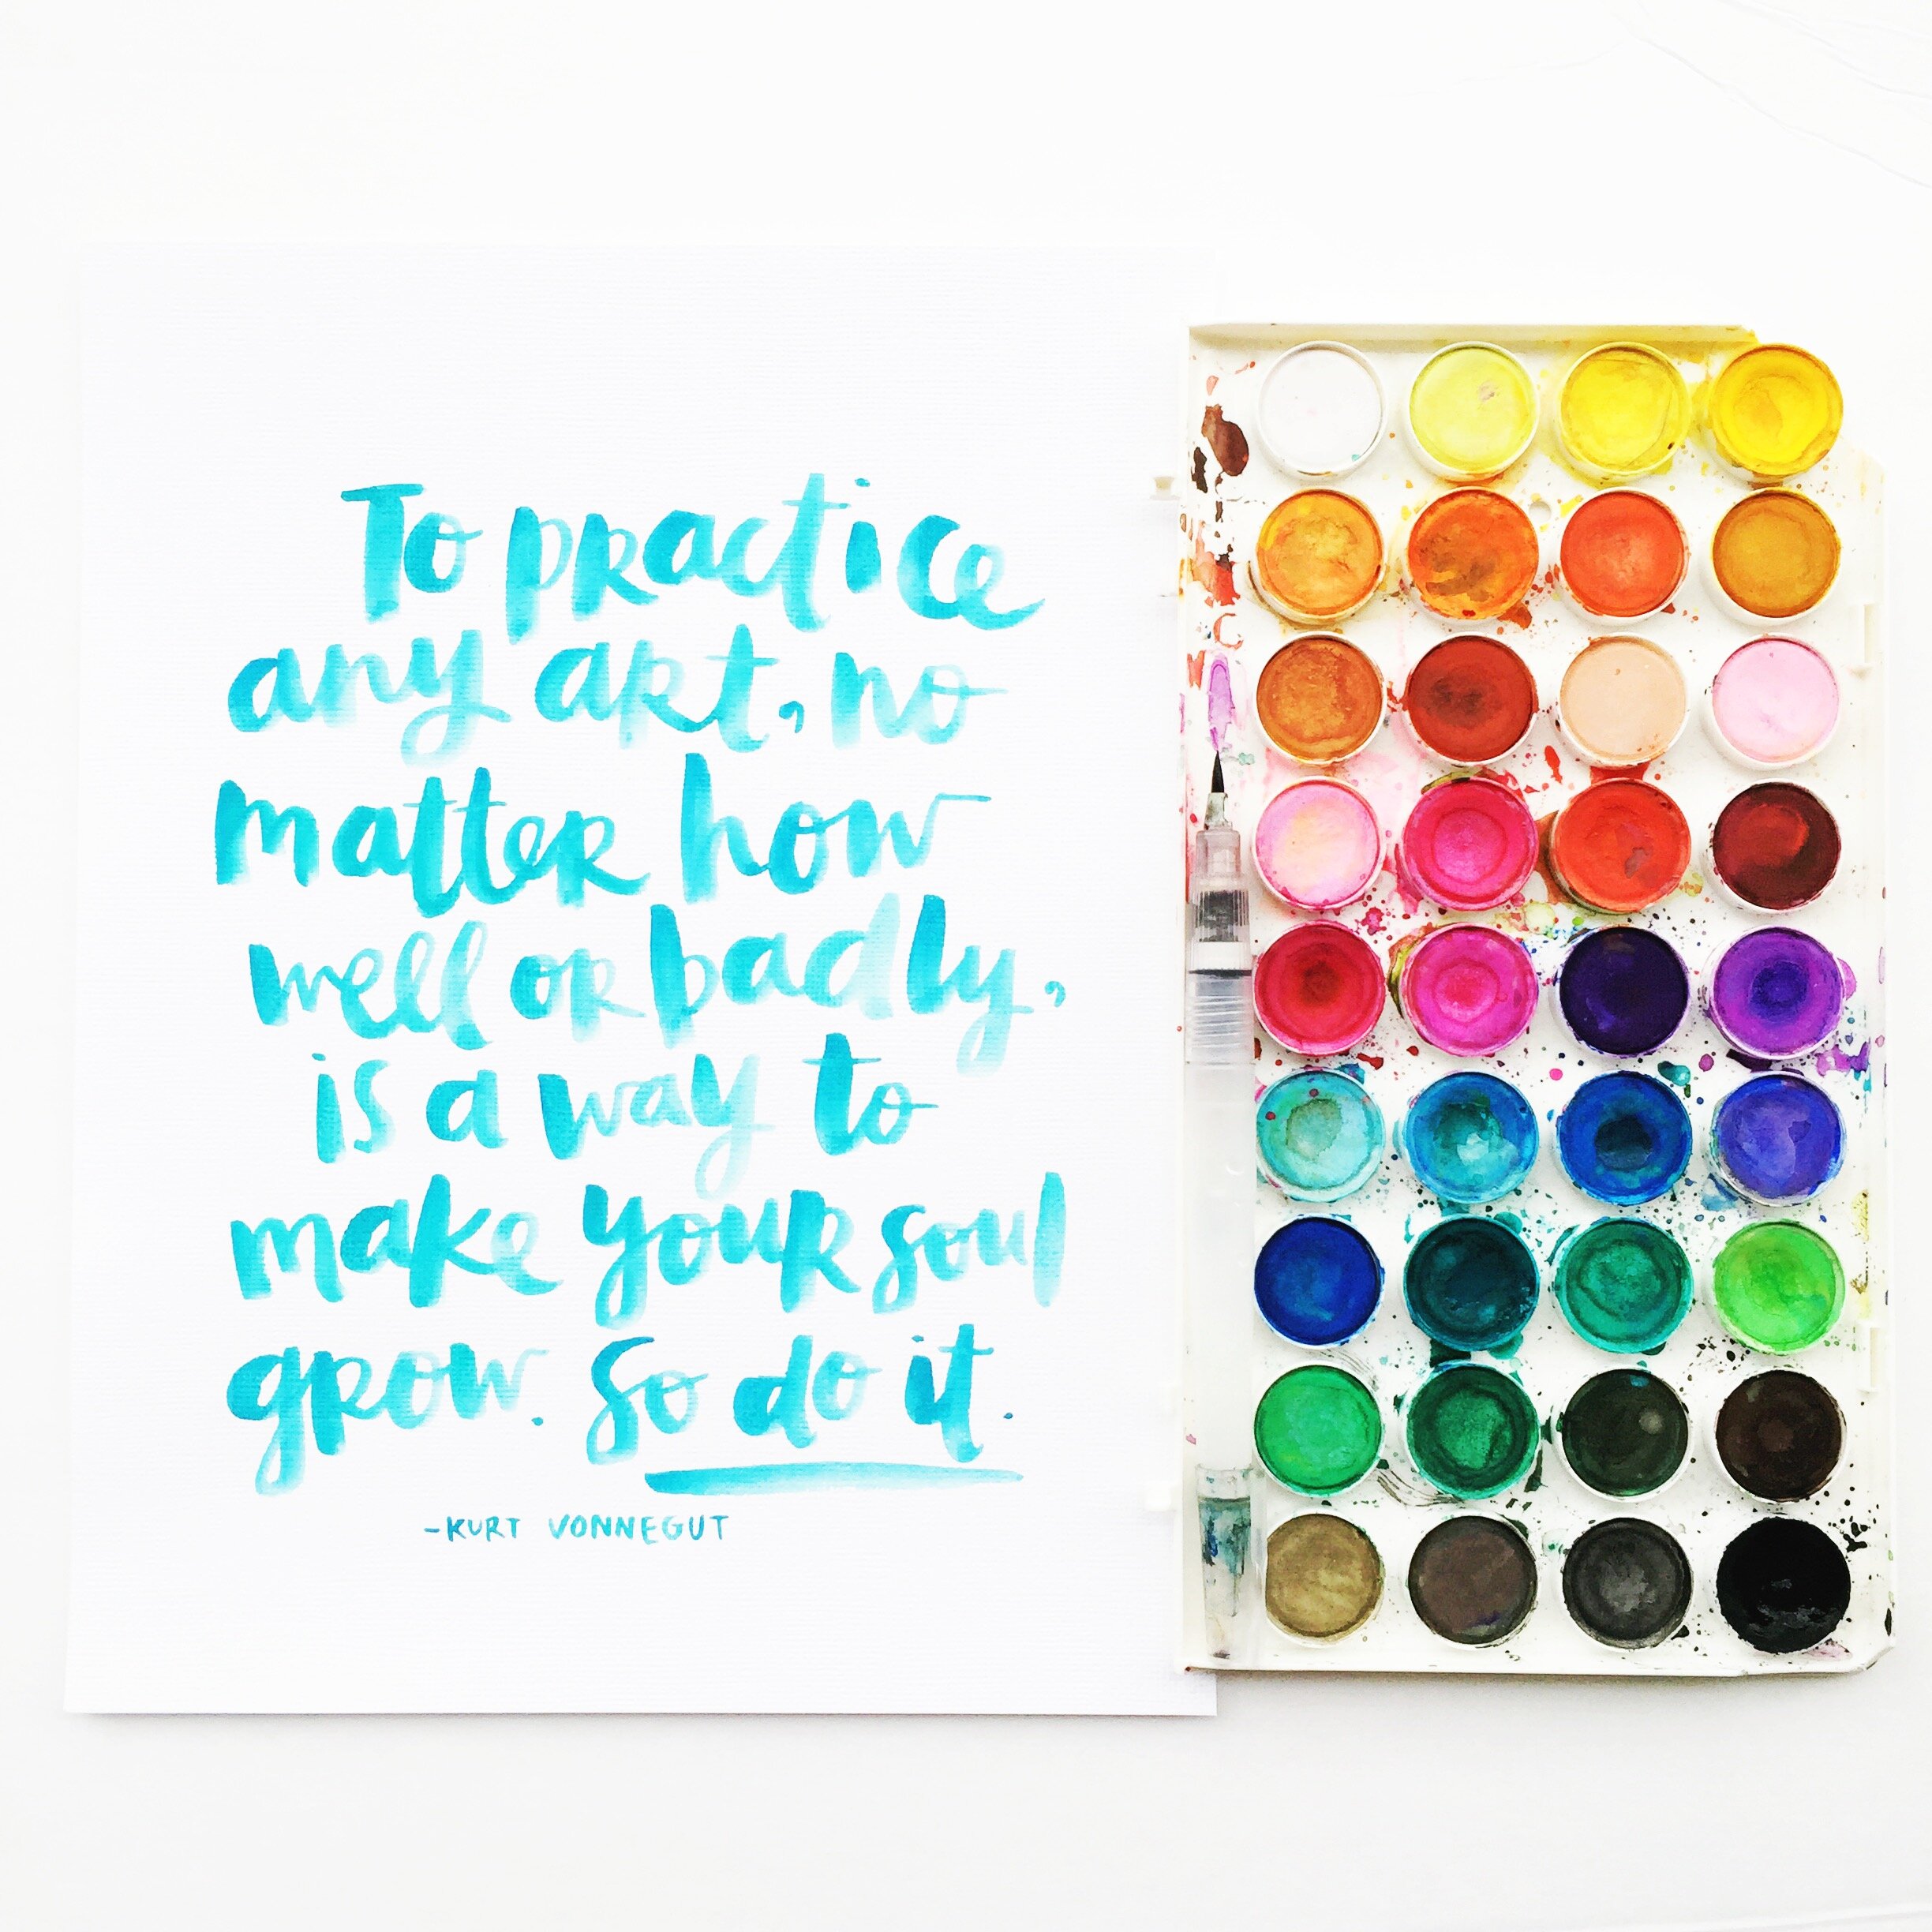 To practice
any art, no
matter how
well or badly,
is a way to
make your soul
grow. So do it.
-KURT VONNEGUT